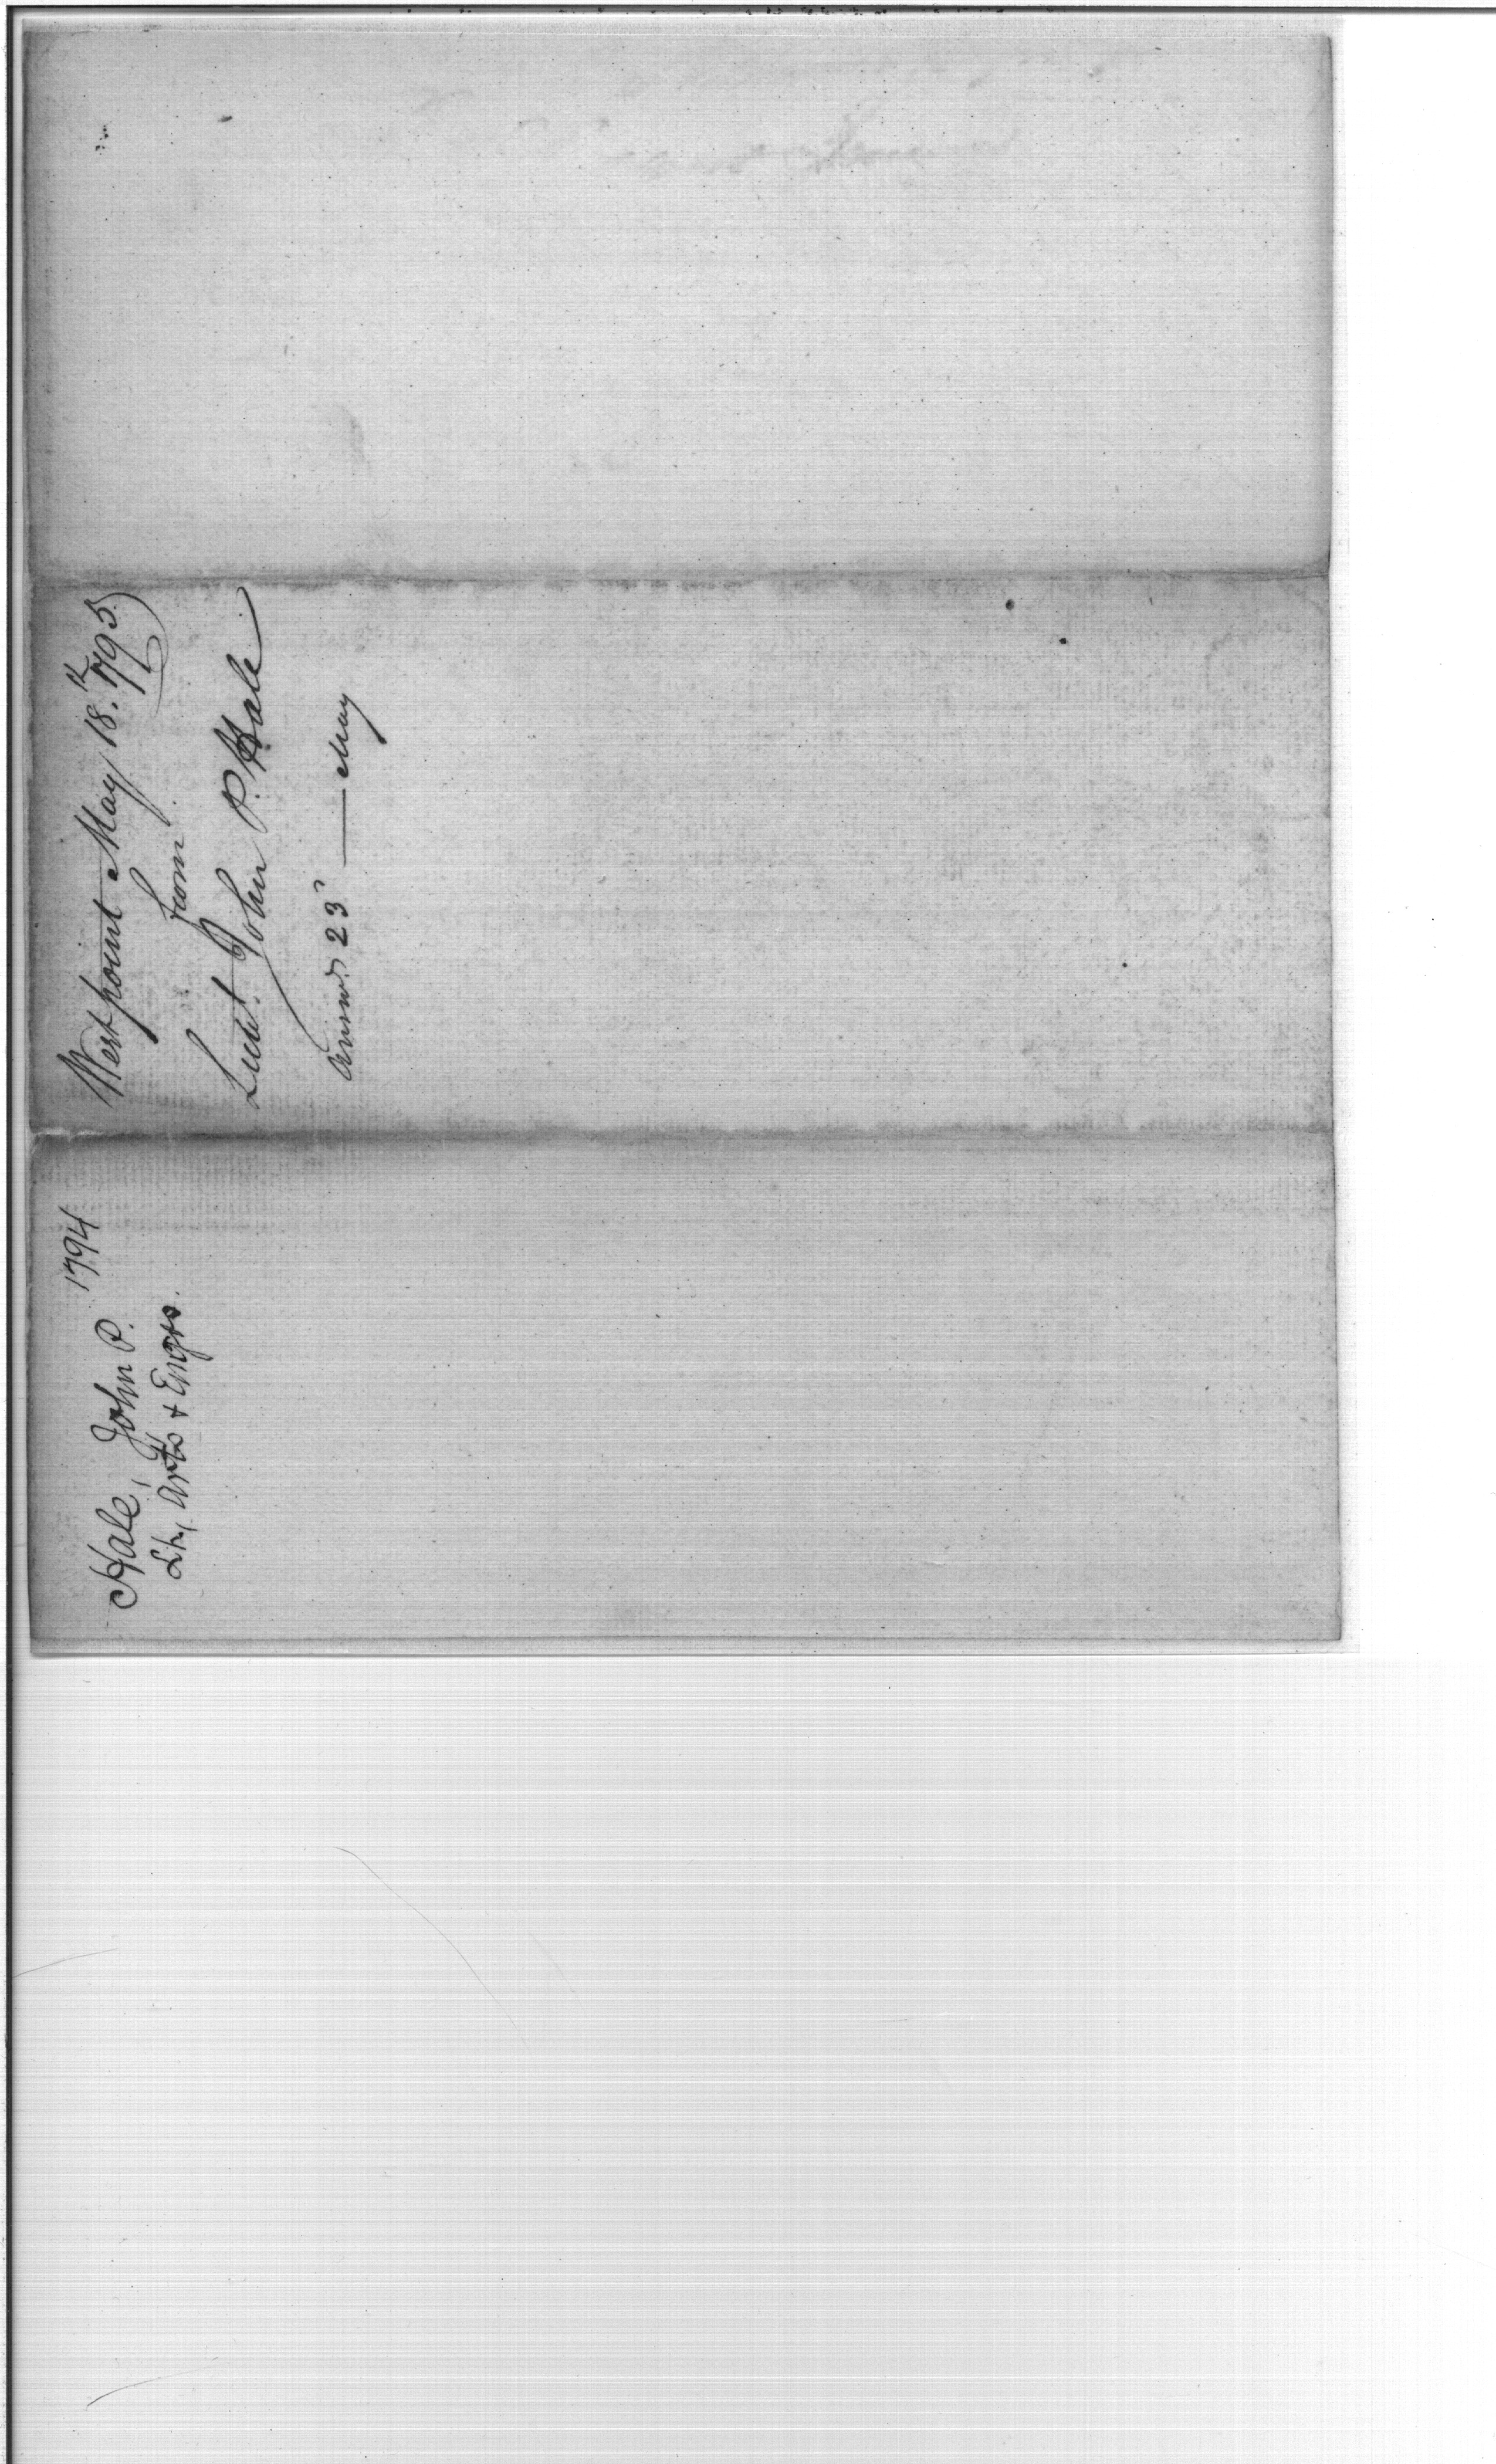 Westpoint May 18.th 1795
from
Lieut. John P. Hale
Answd. 23d — May
Hale, John P. 1794
Lt., Arts & Engrs.